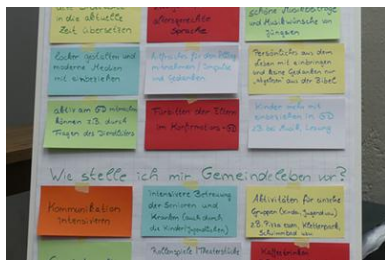 in die aktuelle
Zeit übersetzen
Altersgerechte
Sprache
schöne Musikbeiträge
und Musikwünsche von
Jüngeren
locker gestalten und
moderne Medien
mit einbeziehen
mitnehmen / Impulse
und Gedanken
Persönliches aus dem
Leben mit einbringen
und keine Gedanken nur
aus der Bibel
aktiv am GD mitmachen
können z.B. durch
Tragen des Dienstbuchs
Fürbitten der Eltern
im Konfirmations-GD
Kinder mehr mit
einbeziehen in GD
z.B. bei Musik, Lesung
Wie stelle ich mir Gemeindeleben vor?
Kommunikation
intensivieren
intensivere Betreuung
der Senioren und
Kranken (auch durch
die Kinder/Jugendlichen)
Aktivitäten für unsere
Gruppen (Kinder, Jugend usw.)
z.B. Pizza essen, Kletterpark,
Schwimmbad usw.
Rollenspiele / Theaterstücke